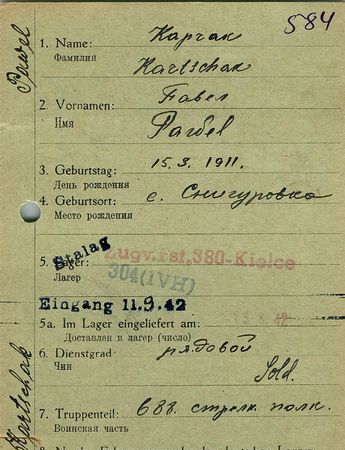 584
Pawel
1. Name: Карчак
Фамилия
Kartschak
2. Vornamen: Павел
Имя
Pawel
3. Geburtstag: 15. 3. 1911.
День рождения
4. Geburtsort: с. Снигуровка
Место рождения
Stalag
5. Lager: Zugv.rst.380-Kielce
Лагер 304(IVH)
Eingang 11.9.42
5a. Im Lager eingeliefert am:
Доставлен в лагер (число)
6. Dienstgrad рядовой
Чин
Sold.
7. Truppenteil: 688. стрелк. полк.
Воинская часть
Kartschak